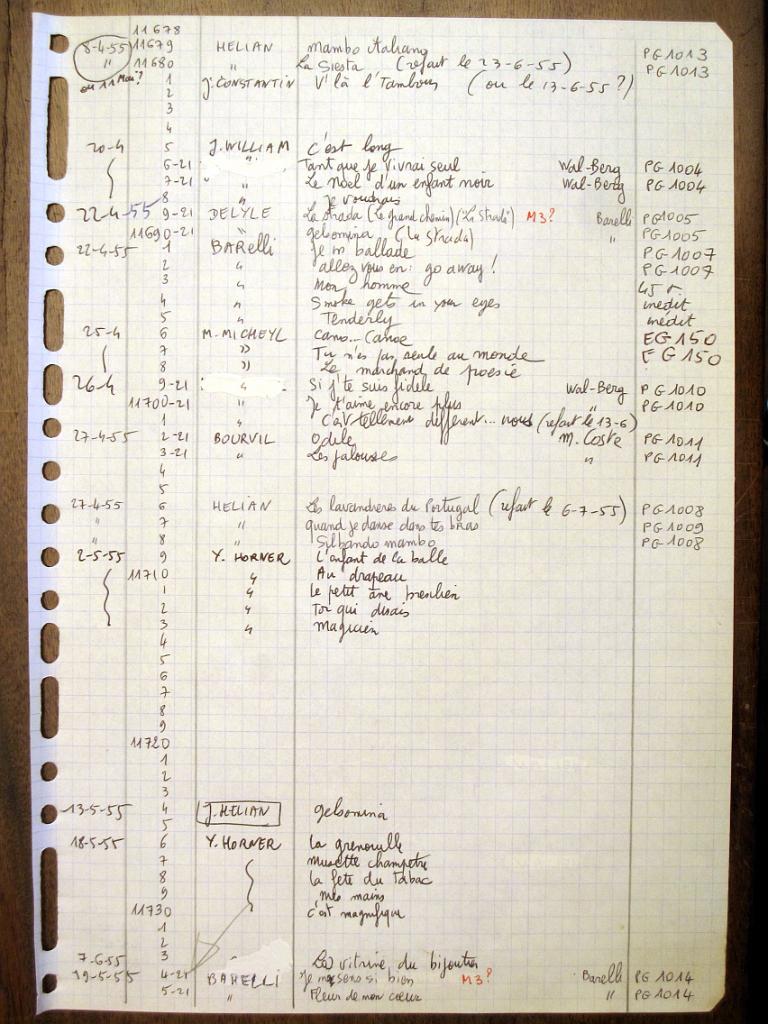 11678
8-4-55 11679 HELIAN mambo italiano PG1013
" 11680 " La Siesta (refait le 23-6-55) PG1013
ou 11 Mai? 1 J. CONSTANTIN V'là l'Tambour (ou le 13-6-55?)
2
3
4
20-4 5 J. WILLIAM C'est long
6-21 " Tant que je vivrai seul Wal-Berg PG1004
7-21 " " Le Noel d'un enfant noir Wal-Berg PG1004
8 " Je voudrais
22-4-55 9-21 DELYLE La strada (le grand chemin) (La Strada) M3? Barelli PG1005
11690-21 " gelsomina (La Strada) " PG1005
22-4-55 1 BARELLI Je m ballade PG1007
2 " allez vous en: go away! PG1007
3 " Mon homme 45 t.
4 " Smoke gets in your eyes inédit
5 " Tenderly inédit
25-4 6 M. MICHEYL Cano... Canoe EG150
7 " Tu n'es pas seule au monde EG150
8 " Le marchand de poesie
26-4 9-21 " Si j'te suis fidele Wal-Berg PG1010
11700-21 " Je t'aime encore plus " PG1010
1 " C'est tellement different... nous (refait le 13-6)
27-4-55 2-21 BOURVIL Odile M. Coste PG1011
3-21 " Les jalouses " PG1011
4
5
27-4-55 6 HELIAN Les lavandieres du Portugal (refait le 6-7-55) PG1008
" 7 " quand je danse dans tes bras PG1009
" 8 " Silbando mambo PG1008
2-5-55 9 Y. HORNER L'enfant de la balle
11710 " Au drapeau
1 " Le petit âne bresilien
2 " Toi qui disais
3 " Magicien
4
5
6
7
8
9
11720
1
2
3
13-5-55 4 J. HELIAN gelsomina
5
18-5-55 6 Y. HORNER La grenouille
7 Musette champetre
8 la fete du Tabac
9 Mes mains
11730 C'est magnifique
1
2
7-6-55 3 " La vitrine du bijoutier
19-5-55 4-21 BARELLI Je me sens si bien M3? Barelli PG1014
5-21 " Fleur de mon coeur " PG1014